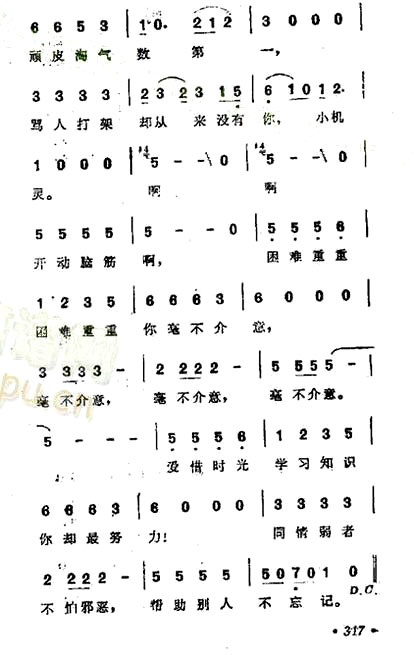 6 6 5 3 | 1 0. 0 2 1 2 | 3 0 0 0 |
顽皮淘气 数 第 一，
3 3 3 3 | 2 3 2 3 1 5 | 6 1 0 1 2. |
骂人打架 却从 来没有 你， 小机
1 0 0 0 | 5 - - \ 0 | 5 - - \ 0 |
灵。 啊 啊
5 5 5 5 | 5 - - 0 | 5 5 5 6 |
开动脑筋 啊， 困难重重
1 2 3 5 | 6 6 6 3 | 6 0 0 0 |
困难重重 你毫不介 意，
3 3 3 3 - | 2 2 2 2 - | 5 5 5 5 - |
毫不介意， 毫不介意， 毫不介意。
5 - - - | 5 5 5 6 | 1 2 3 5 |
爱惜时光 学习知识
6 6 6 3 | 6 0 0 0 | 3 3 3 3 |
你却最努 力！ 同情弱者
2 2 2 2 - | 5 5 5 5 | 5 0 7 0 1 0 ||
不怕邪恶， 帮助别人 不忘记。 D.C.
· 317 ·